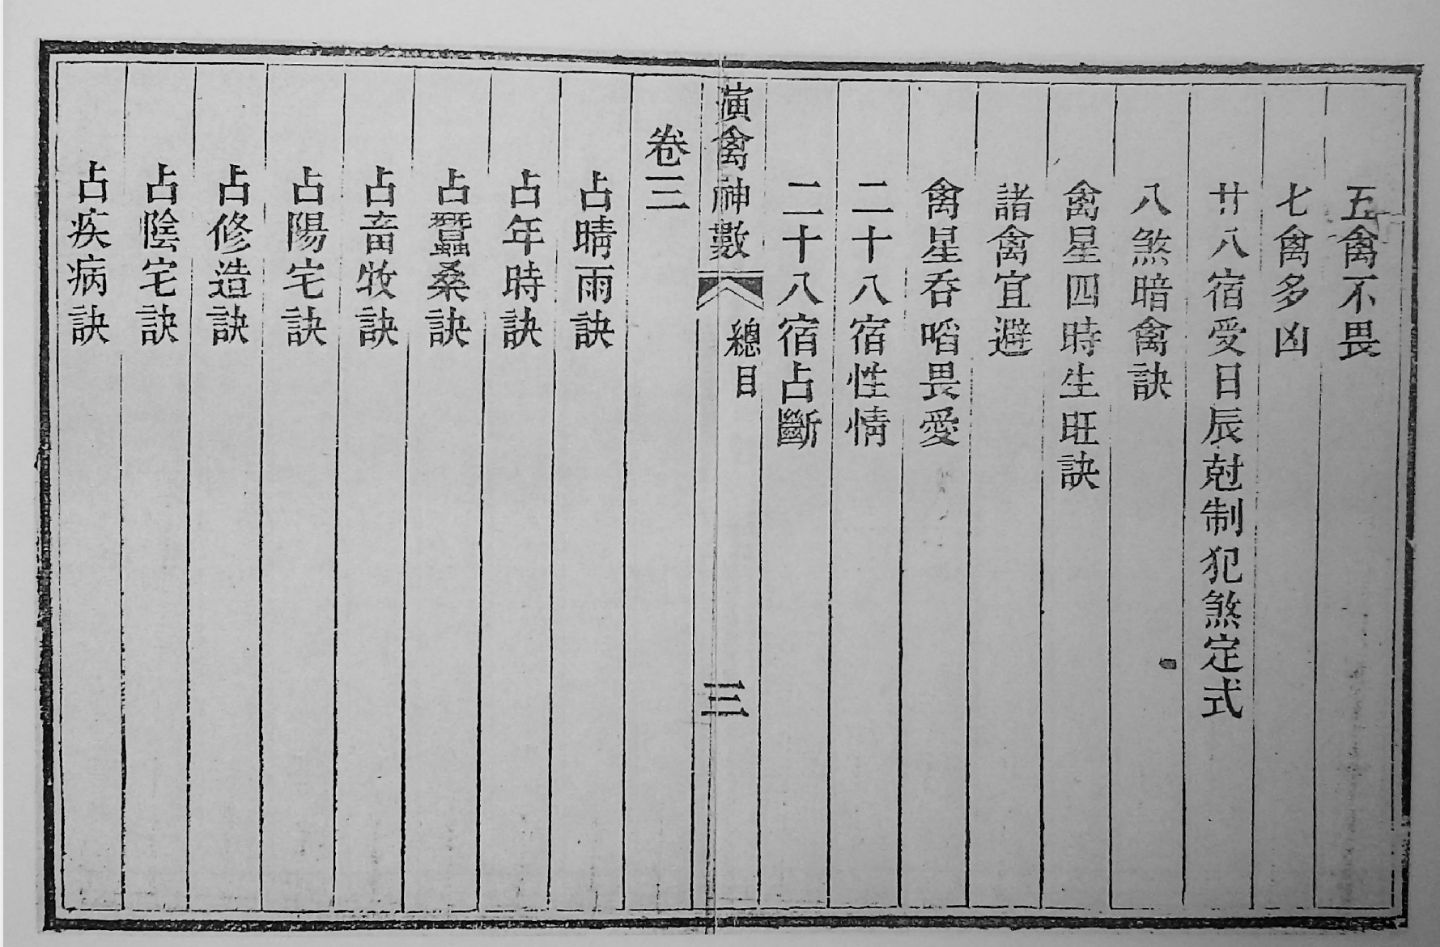 五禽不畏
七禽多凶
廿八宿受日辰尅制犯煞定式
八煞暗禽訣
禽星四時生旺訣
諸禽宜避
禽星吞啗畏愛
二十八宿性情
二十八宿占斷
演禽神數
總目
三
卷三
占晴雨訣
占年時訣
占蠶桑訣
占畜牧訣
占陽宅訣
占修造訣
占陰宅訣
占疾病訣